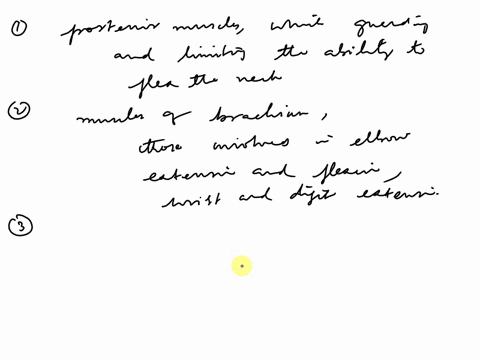 ① posterior muscles, while guarding
and limiting the ability to
flex the neck
② muscles of brachium,
those involves in elbow
extension and flexion,
wrist and digit extension.
③